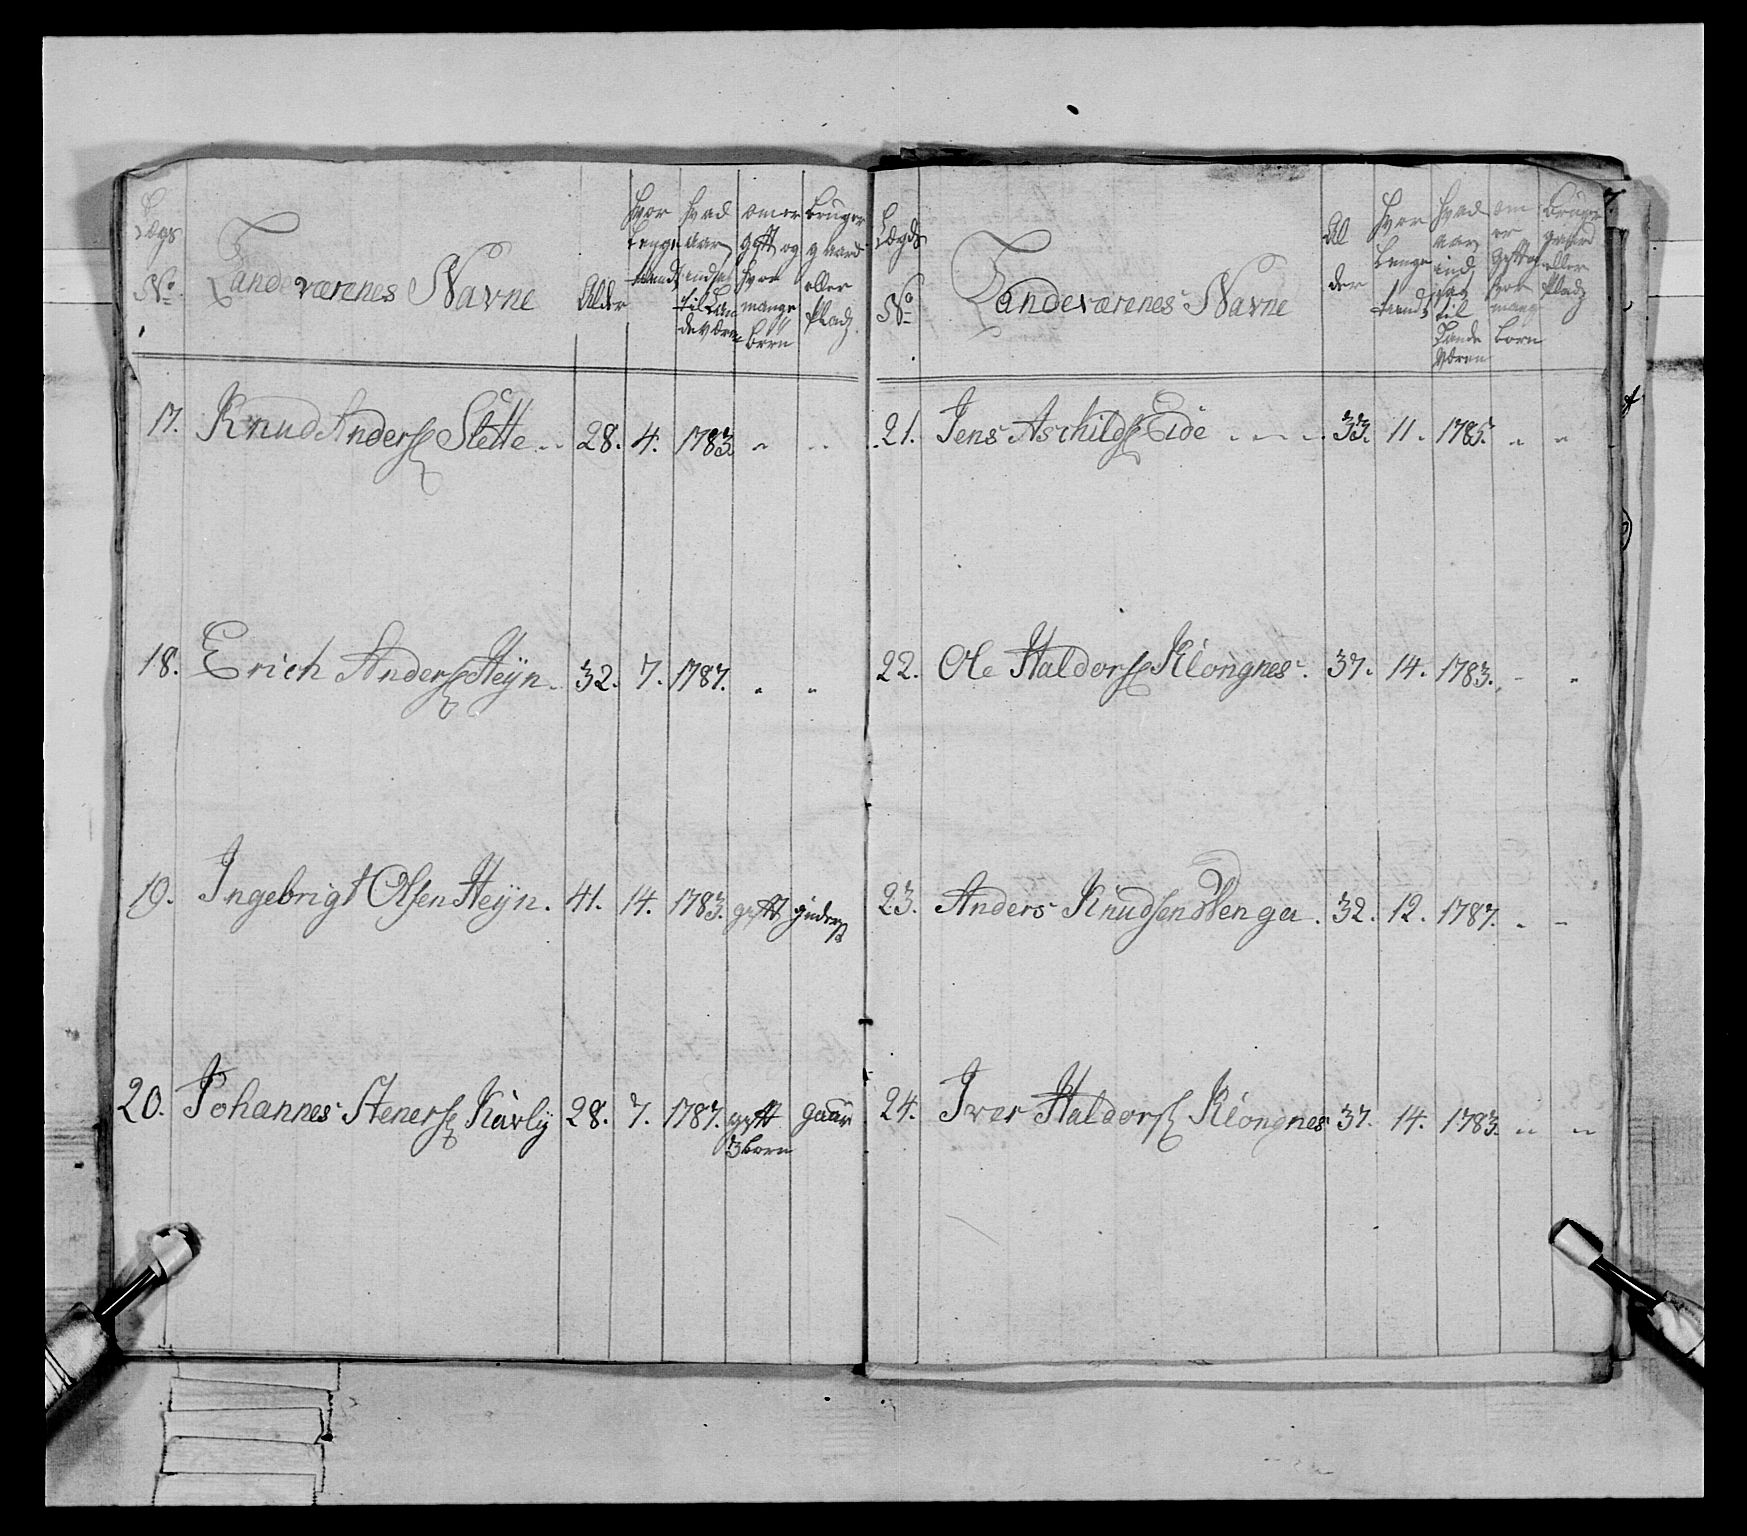 Lægs No
Landeværenes Navne
Alder
hvor Lenge tient
hvad aar indsat til Landeværn
om er gift og hvor mange børn
bruger gaard eller Plads
17. Knud Anders Slette 28. 4. 1783. " "
18. Erich Anders Heyn. 32. 7. 1787. " "
19. Ingebrigt Olsen Heyn. 41. 14. 1783. gift inderst
20. Johannes Steners Kavly 28. 7. 1787. gift gaar
3 born
7
Lægds No
Landeværenes Navne
Alder
hvor Lenge tient
hvad aar ind sat til Lande Væren
om er gift og hvor mange born
bruger gaard eller Plads
21. Jens Aschilds Eide 33. 11. 1785. " "
22. Ole Haldors Klongnes. 37. 14. 1783. " "
23. Anders Knudsen Venga. 32. 12. 1787. " "
24. Iver Haldors Klongnes 37. 14. 1783. " "